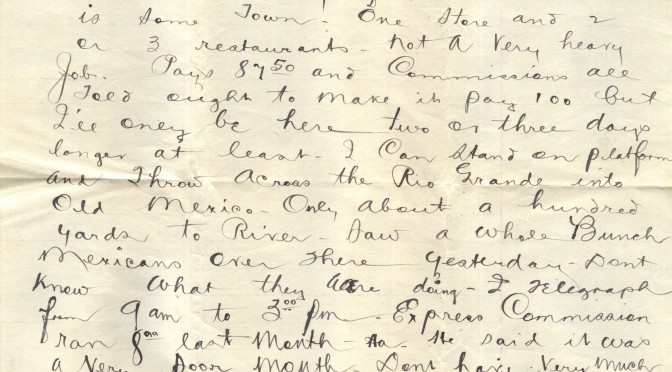 is some Town! One store and 2
or 3 restaurants - Not a very heavy
Job. Pays 87 50 and Commissions all
Told ought to make it pay 100 but
I'll only be here two or three days
longer at least - I can stand on platform
and Throw Across the Rio Grande into
Old Mexico - Only about a hundred
yards to River - Saw a whole Bunch
Mexicans over there yesterday - Dont
Know what they are doing - I Telegraph
from 9 am to 3 00 pm - Express Commission
ran 8 00 last Month - He said it was
a Very Poor Month - Dont have Very Much